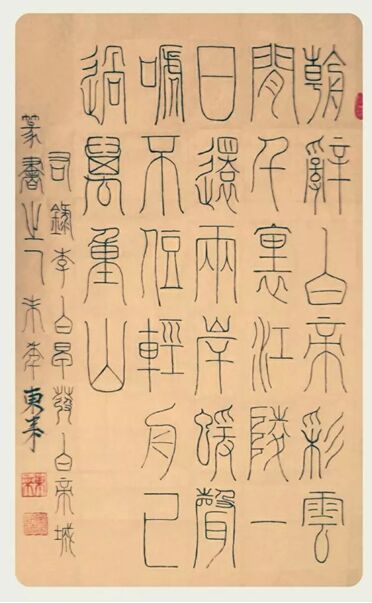 朝辭白帝彩雲
間千裏江陵一
日還兩岸蝯聲
嗁不住輕舟已
過萬重山
右錄李白早發白帝城
篆書之乙未年東